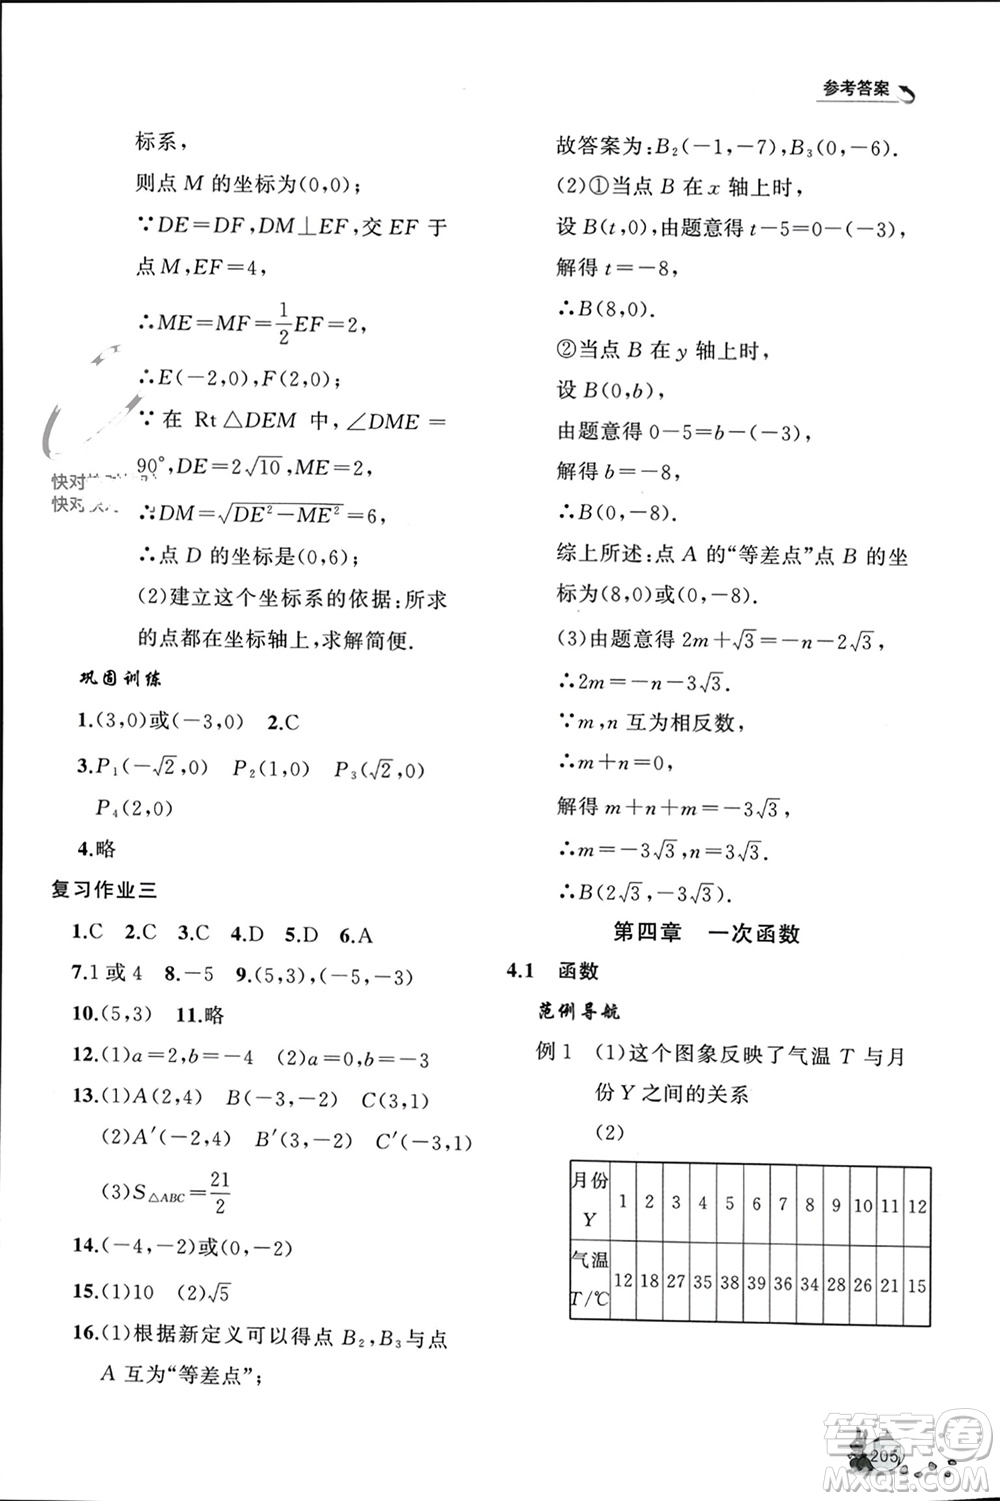 参考答案
标系，
则点 M 的坐标为(0,0)；
∵DE=DF,DM⊥EF,交 EF 于
点 M,EF=4,
∴ME=MF=1/2EF=2,
∴E(-2,0),F(2,0)；
∵在 Rt△DEM 中,∠DME=
90°,DE=2√10,ME=2,
∴DM=√(DE²-ME²)=6,
∴点 D 的坐标是(0,6)；
(2)建立这个坐标系的依据:所求
的点都在坐标轴上,求解简便.
巩固训练
1.(3,0)或(-3,0) 2.C
3.P₁(-√2,0) P₂(1,0) P₃(√2,0)
P₄(2,0)
4.略
复习作业三
1.C 2.C 3.C 4.D 5.D 6.A
7.1 或 4 8.-5 9.(5,3),(-5,-3)
10.(5,3) 11.略
12.(1)a=2,b=-4 (2)a=0,b=-3
13.(1)A(2,4) B(-3,-2) C(3,1)
(2)A′(-2,4) B′(3,-2) C′(-3,1)
(3)S△ABC=21/2
14.(-4,-2)或(0,-2)
15.(1)10 (2)√5
16.(1)根据新定义可以得点 B₂,B₃与点
A 互为“等差点”；
故答案为:B₂(-1,-7),B₃(0,-6).
(2)①当点 B 在 x 轴上时,
设 B(t,0),由题意得 t-5=0-(-3),
解得 t=-8,
∴B(8,0).
②当点 B 在 y 轴上时,
设 B(0,b),
由题意得 0-5=b-(-3),
解得 b=-8,
∴B(0,-8).
综上所述:点 A 的“等差点”点 B 的坐
标为(8,0)或(0,-8).
(3)由题意得 2m+√3=-n-2√3,
∴2m=-n-3√3.
∵m,n 互为相反数,
∴m+n=0,
解得 m+n+m=-3√3,
∴m=-3√3,n=3√3.
∴B(2√3,-3√3).
第四章 一次函数
4.1 函数
范例导航
例 1 (1)这个图象反映了气温 T 与月
份 Y 之间的关系
(2)
月份 Y 1 2 3 4 5 6 7 8 9 10 11 12
气温 T/℃ 12 18 27 35 38 39 36 34 28 26 21 15
205
快对
快对
答案卷